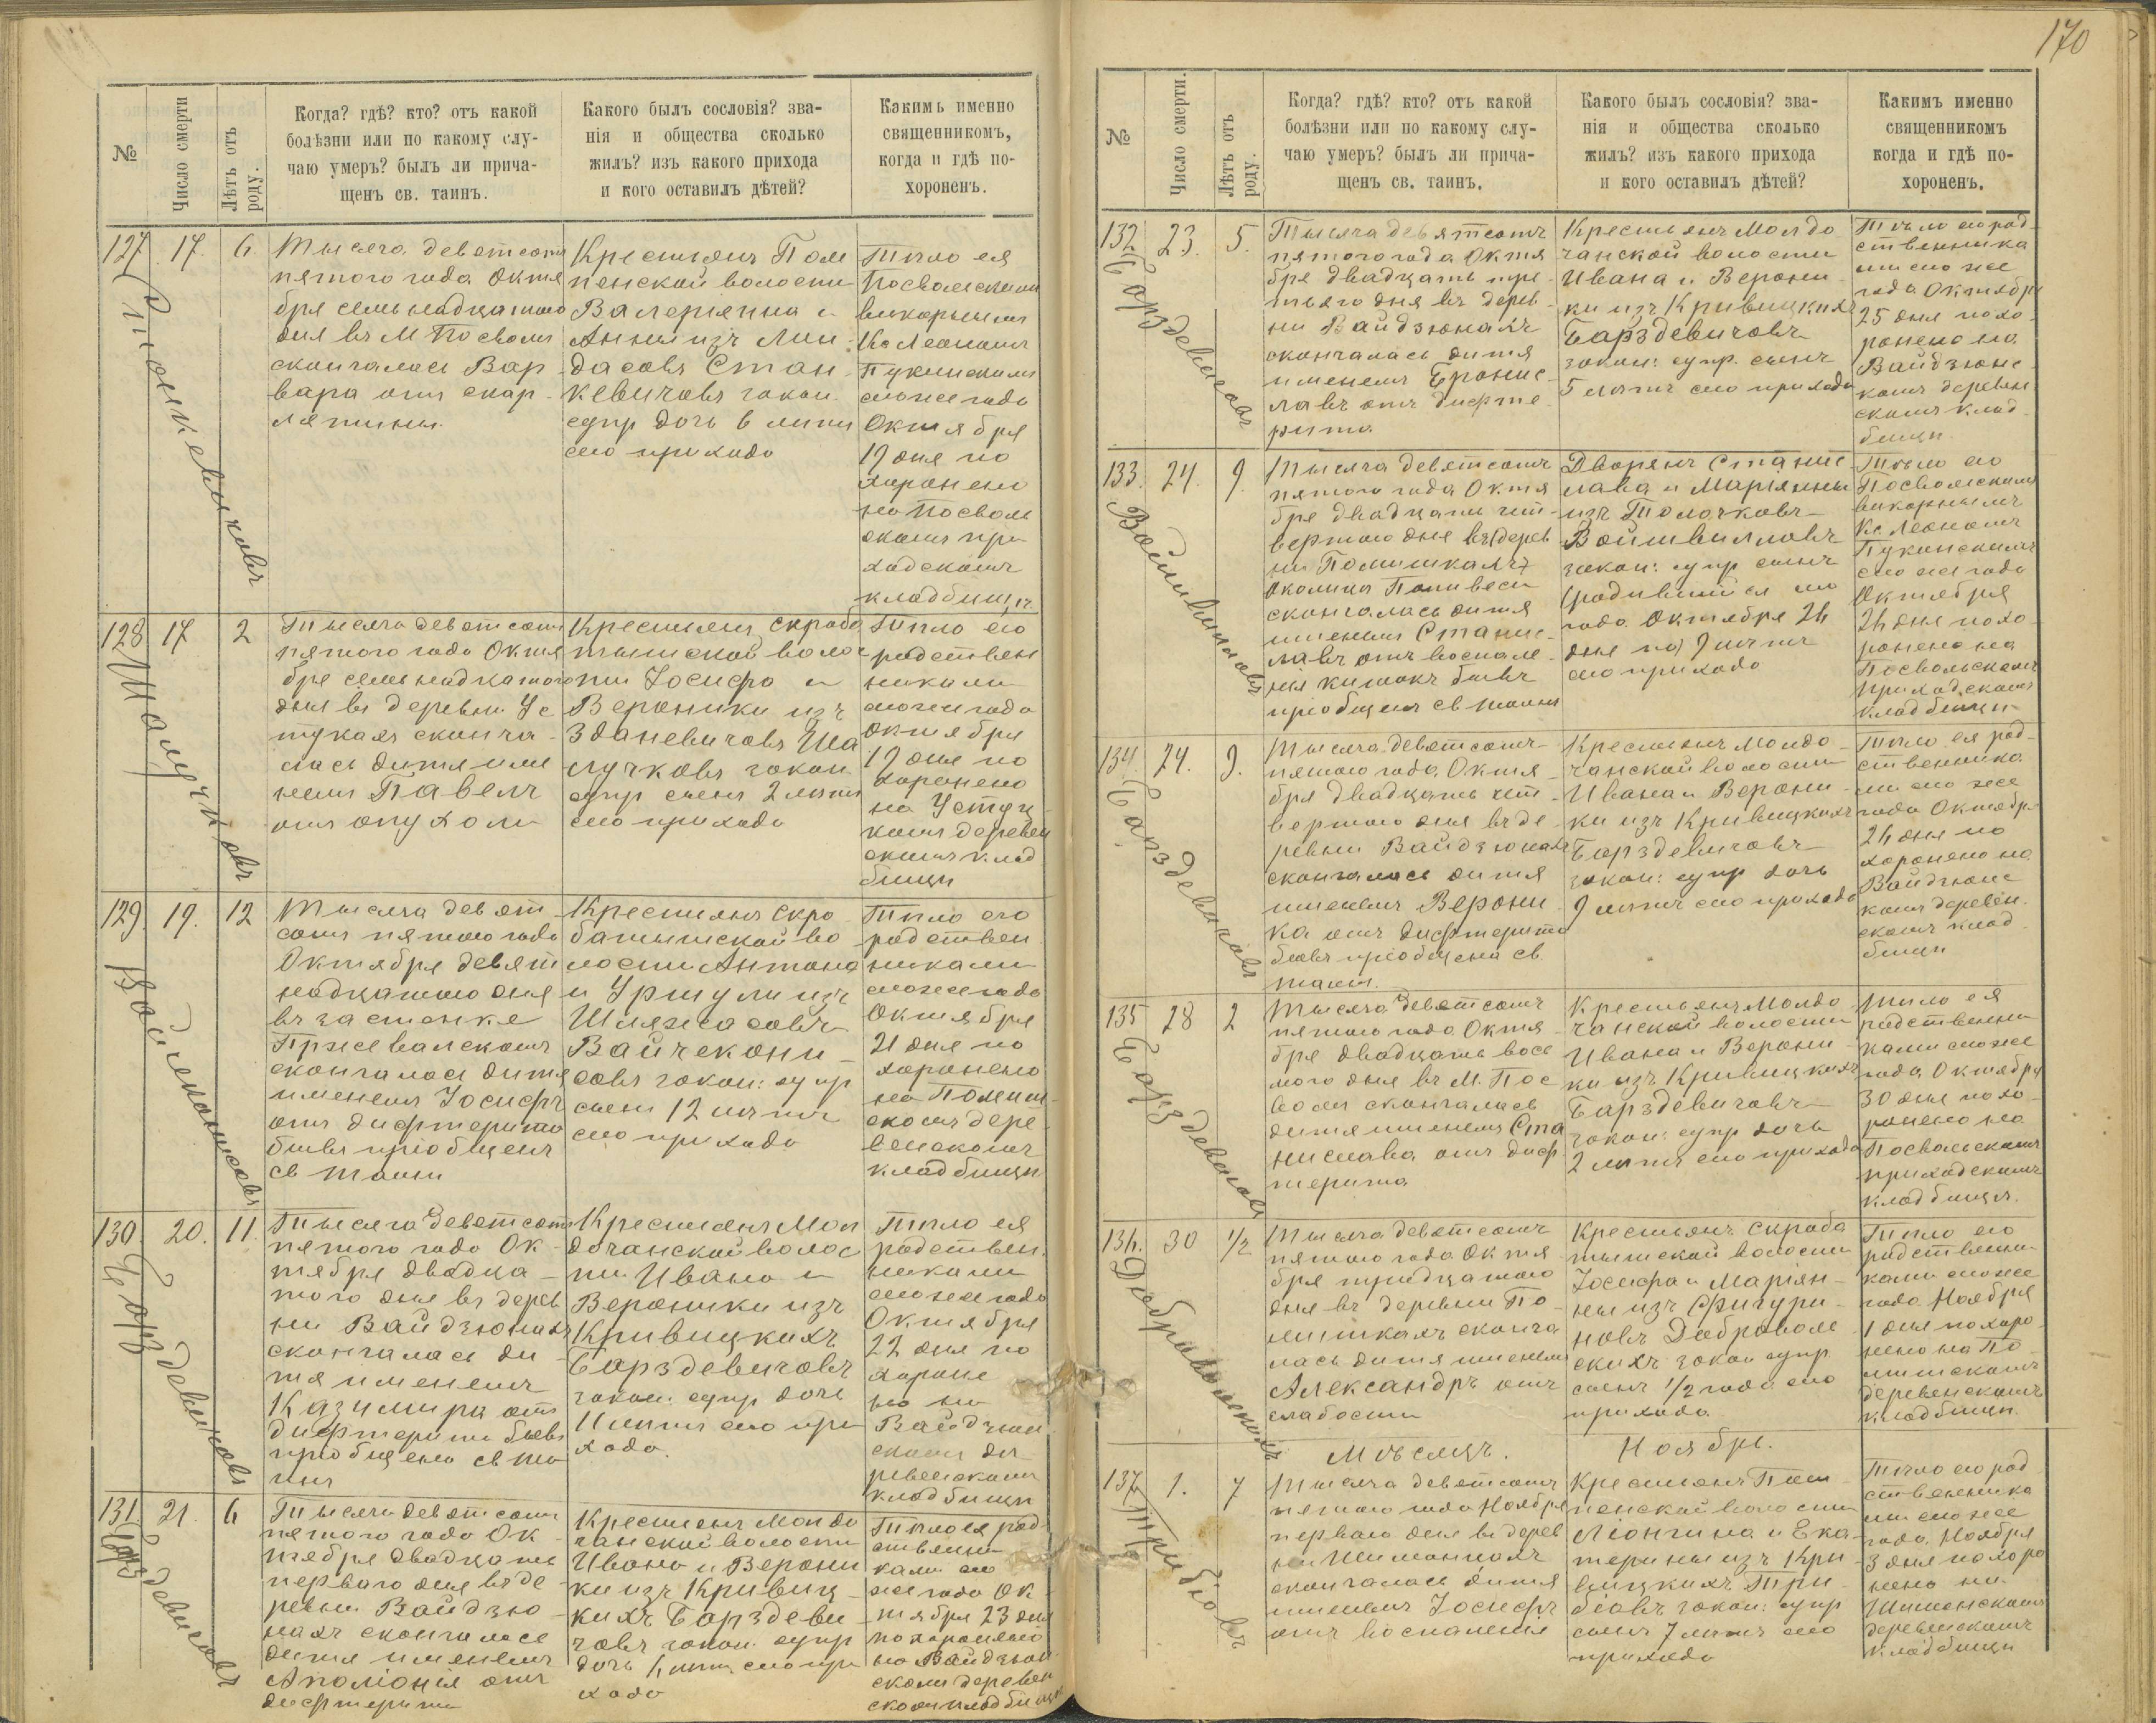 170
№
Число смерти
Лѣтъ отъ роду.
Когда? гдѣ? кто? отъ какой
болѣзни или по какому слу-
чаю умеръ? былъ ли прича-
щенъ св. таинъ.
Какого былъ сословія? зва-
нія и общества сколько
жилъ? изъ какого прихода
и кого оставилъ дѣтей?
Какимъ именно
священникомъ,
когда и гдѣ по-
хороненъ.
127
17.
6
Станкевичовъ
Тысяча девятсотъ
пятого года Октя
бря семьнадцатого
дня въ М Посволи
скончалась Вар
вара отъ скар-
лятины.
Крестьянъ Пом
пенской волости
Валеріянна и
Анны изъ
дасовъ Стан
кевичовъ закон
супр дочь 6 лѣтъ
сего прихода
Тѣло ея
Посвольскимъ
викарнымъ
Кс Леономъ
Пукинскимъ
сегоже года
Октября
19 дня по
хоронено
на Посволь
скомъ при
ходскомъ
кладбищѣ
128
17
2
Шалучковъ
Тысяча девятсотъ
пятого года Октя
бря семьнадцатого
дня въ деревни Ус
тукахъ сконча-
лась дитя име
немъ Павелъ
отъ опухоли
Крестьянъ Скроба
тышской волос
ти Іосифа и
Вероники изъ
Зданевичовъ Ша
лучковъ закон
супр сынъ 2 лѣтъ
сего прихода
Тѣло его
родствен
никами
сегоже года
Октября
19 дня по
хоронено
на Устук
комъ деревен
скомъ клад
бищи
129
19.
12
Тысяча девят
сотъ пятого года
Октября девят
надцатого дня
въ застенке
Пржевалскомъ
скончалась дитя
именемъ Іосифъ
отъ дифтерита
бывъ пріобщенъ
св таин
Крестьянъ Скро
батышской во
лости Антона
и Уршули изъ
Шляжасовъ
Вайчекони-
совъ закон: супр
сынъ 12 лѣтъ
сего прихода
Тѣло его
родствен
никами
сегоже года
Октября
21 дня по
хоронено
на
скомъ дере
венскомъ
кладбищи
130.
20.
11.
Борздевичовъ
Тысяча девятсотъ
пятого года Ок-
тября двадца-
того дня въ дерев
ни Вайдзюнахъ
скончалась ди
тя именемъ
Казимира отъ
дифтерита бывъ
пріобщено св та
инъ
Крестьянъ Мол
дочанской волос
ти Ивана и
Вероники изъ
Кривицкихъ
Борздевичовъ
закон: супр дочь
11 лѣтъ сего при
хода.
Тѣло ея
родствен
никами
сегоже года
Октября
22 дня по
хороне
но на
Вайдзюн
скомъ де
ревенскомъ
кладбищи
131
21.
6
Борздевичовъ
Тысяча девятсотъ
пятого года Ок
тября двадцать
первого дня въ де
ревни Вайдзю-
нахъ скончалась
дитя именемъ
Аполіонія отъ
дифтерита
Крестьянъ Молдо
чанской волости
Ивана и Верони
ки изъ Кривиц-
кихъ Борздеви
човъ закон. супр
дочь 6 лѣтъ сего при
хода
Тѣло ея род
ственни
ками сего
же года Ок
тября 23 дня
похоронено
на Вайдзюн
скомъ деревен
скомъ кладбищи
№
Число смерти.
Лѣтъ отъ роду.
Когда? гдѣ? кто? отъ какой
болѣзни или по какому слу-
чаю умеръ? былъ ли прича-
щенъ св. таинъ.
Какого былъ сословія? зва-
нія и общества сколько
жилъ? изъ какого прихода
и кого оставилъ дѣтей?
Какимъ именно
священникомъ
когда и гдѣ по-
хороненъ.
132
23.
5.
Борздевичовъ
Тысяча девятсотъ
пятого года Октя
бря двадцать тре
тьяго дня въ дерев-
ни Вайдзюнахъ
скончалась дитя
именемъ Бронис-
лавъ отъ дифте-
рита
Крестьянъ Молдо
чанской волости
Ивана и Верони-
ки изъ Кривицкихъ
Барздевичовъ
закон: супр. сынъ
5 лѣтъ сего прихода
Тѣло его род-
ственника
ми сего же
года Октября
25 дня похо-
ронено на
Вайдзюнс-
комъ деревен
скомъ клад-
бищи
133.
24.
9.
Войшвилловъ
Тысяча девятсотъ
пятого года Октя
бря двадцать чет-
вертого дня въ дерев
ни Помишкахъ
околица Паливеси
скончалась дитя
именемъ Станис-
лавъ отъ воспале-
нія кишокъ бывъ
пріобщенъ св таинъ
Дворянъ Станис-
лава и Маріянны
изъ Толочковъ
Войшвилловъ
закон: супр сынъ
дня 9 лѣтъ
сего прихода
Тѣло его
Посвольскимъ
викарнымъ
Кс. Леономъ
Пукинскимъ
сего же года
Октября
26 дня похо-
ронено на
Посвольскомъ
приходскомъ
кладбищи
134.
24.
9.
Барздевичовъ
Тысяча девятсотъ
пятого года Октя-
бря двадцать чет-
вертого дня въ де-
ревни Вайдзюнахъ
скончалась дитя
именемъ Верони-
ка отъ дифтерита
бывъ пріобщена св.
таинъ.
Крестьянъ Молдо-
чанской волости
Ивана и Верони-
ки изъ Кривицкихъ
Борздевичовъ
закон: супр дочь
9 лѣтъ сего прихода
Тѣло ея род-
ственника
ми сего же
года Октября
26 дня по
хоронено на
Вайдзюнс
комъ деревен
скомъ клад
бищи
135
28
2
Борздевичовъ
Тысяча девятсотъ
пятого года Октя-
бря двадцать вось
мого дня въ М. Пос
воли скончалась
дитя именемъ Ста
нислава отъ диф
терита.
Крестьянъ Молдо
чанской волости
Ивана и Верони-
ки изъ Кривицкихъ
Барздевичовъ
закон: супр дочь
2 лѣтъ сего прихода
Тѣло ея
родственни
ками сего же
года Октября
30 дня похо
ронено на
Посвольскомъ
приходскомъ
кладбищи.
136.
30
1/2
Добровольскихъ
Тысяча девятсотъ
пятого года Октя-
бря тридцатого
дня въ деревни По-
мишкахъ сконча
лась дитя именемъ
Александръ отъ
слабости
Крестьянъ Скроба
тышской волости
Іосифа и Маріян-
ны изъ Фигури-
новъ Добровол
скихъ закон супр
сынъ 1/2 года сего
прихода
Тѣло его
родственни
ками сего же
года Ноября
1 дня похоро-
нено на По
мишскомъ
деревенскомъ
кладбищи.
Мѣсяцъ. Ноябрь.
137
1.
7
Трибіовъ
Тысяча девятсотъ
пятого года Ноября
первого дня въ дерев
ни
скончалась дитя
именемъ Іосифъ
отъ воспаленія
Крестьянъ Пом-
пенской волости
Лонгина и Ека-
терины изъ Кри
вицкихъ Три-
біовъ закон: супр
сынъ 7 лѣтъ сего
прихода
Тѣло его род
ственника
ми сего же
года Ноября
3 дня похоро
нено на
деревенскомъ
кладбищи